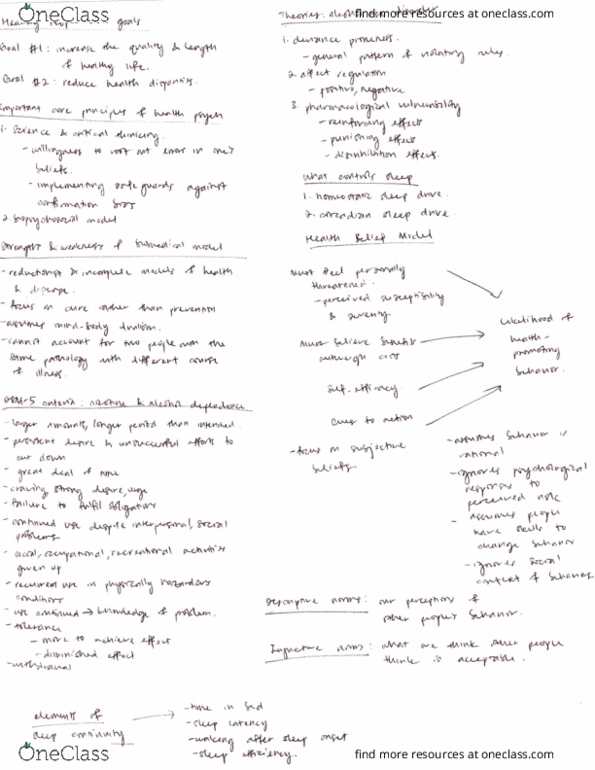 OneClass
find more resources at oneclass.com
goals
Goal #1: increase the quality & length
of healthy life.
Goal #2: reduce health disparities.
Important core principles of health psych
1. Science & critical thinking.
- willingness to root out errors in one's
beliefs.
- implementing safe guards against
confirmation bias
2. biopsychosocial model
Strengths & weakness of biomedical model
- reductionist & incomplete models of health
& disease.
- focus on cure rather than prevention
- assumes mind-body dualism.
- cannot account for two people with the
same pathology with different course
of illness.
DSM-5 criteria: nicotine & alcohol dependence
- larger amounts, longer period than intended.
- persistent desire & unsuccessful efforts to
cut down
- great deal of time
- craving, strong desire, urge
- failure to fulfil obligations
- continued use despite interpersonal, social
problems
- social, occupational, recreational activities
given up
- recurrent use in physically hazardous
conditions
- use continued → knowledge of problem.
- tolerance
- more to achieve effect
- diminished effect
- withdrawal
elements of
sleep continuity
- time in bed
- sleep latency
- waking after sleep onset
- sleep efficiency.
Theories:
1. deviance proneness.
- general pattern of violating rules.
2. affect regulation
- positive, negative
3. pharmacological vulnerability
- reinforcing effects
- punishing effect
- disinhibition effect.
what controls sleep
1. homeostatic sleep drive.
2. circadian sleep drive.
Health Belief Model
must feel personally
threatened.
- perceived susceptibility
& severity
must believe benefits
outweigh cost
self-efficacy
cues to action
likelihood of
health-
promoting
behavior.
- focus on subjective
beliefs
- assumes behavior is
rational
- ignores psychological
response to
perceived risk
- assumes people
have skills to
change behavior
- ignores social
context of behavior
Descriptive norms: our perceptions of
other people's behavior.
Injunctive norms: what we think other people
think is acceptable.
OneClass
find more resources at oneclass.com